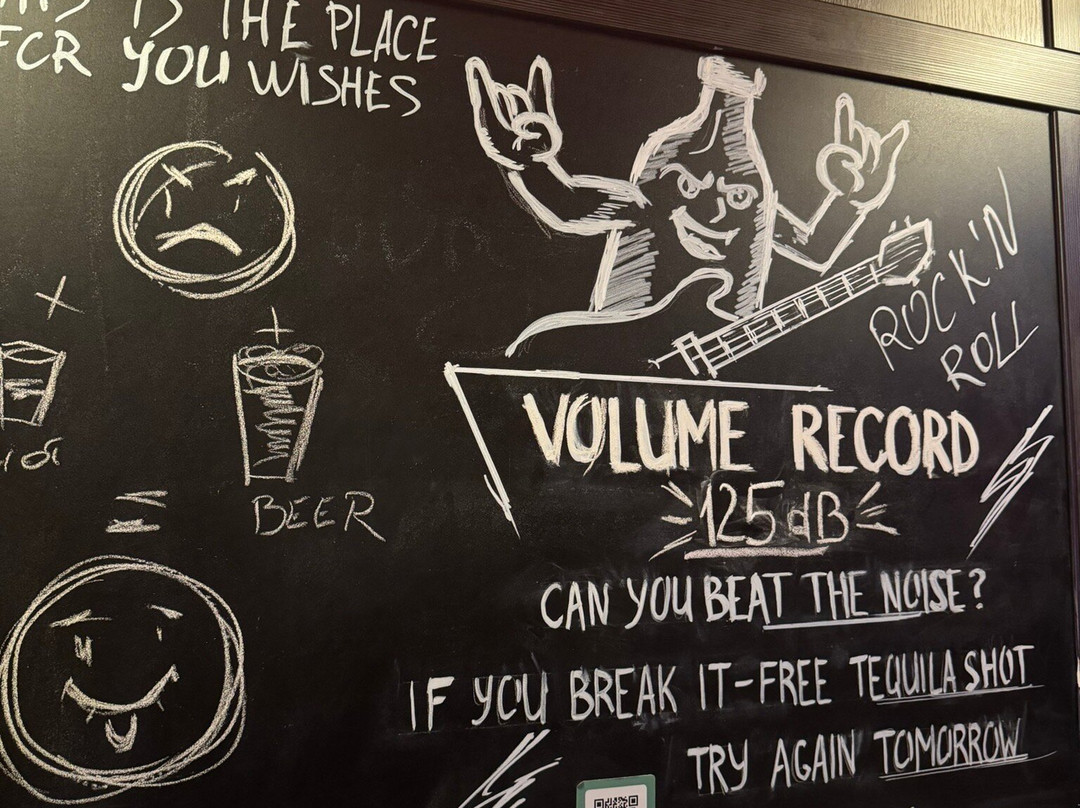 IS THE PLACE
FOR YOU WISHES
ROCK'N
ROLL
BEER
VOLUME RECORD
125 dB
CAN YOU BEAT THE NOISE?
IF YOU BREAK IT-FREE TEQUILA SHOT
TRY AGAIN TOMORROW